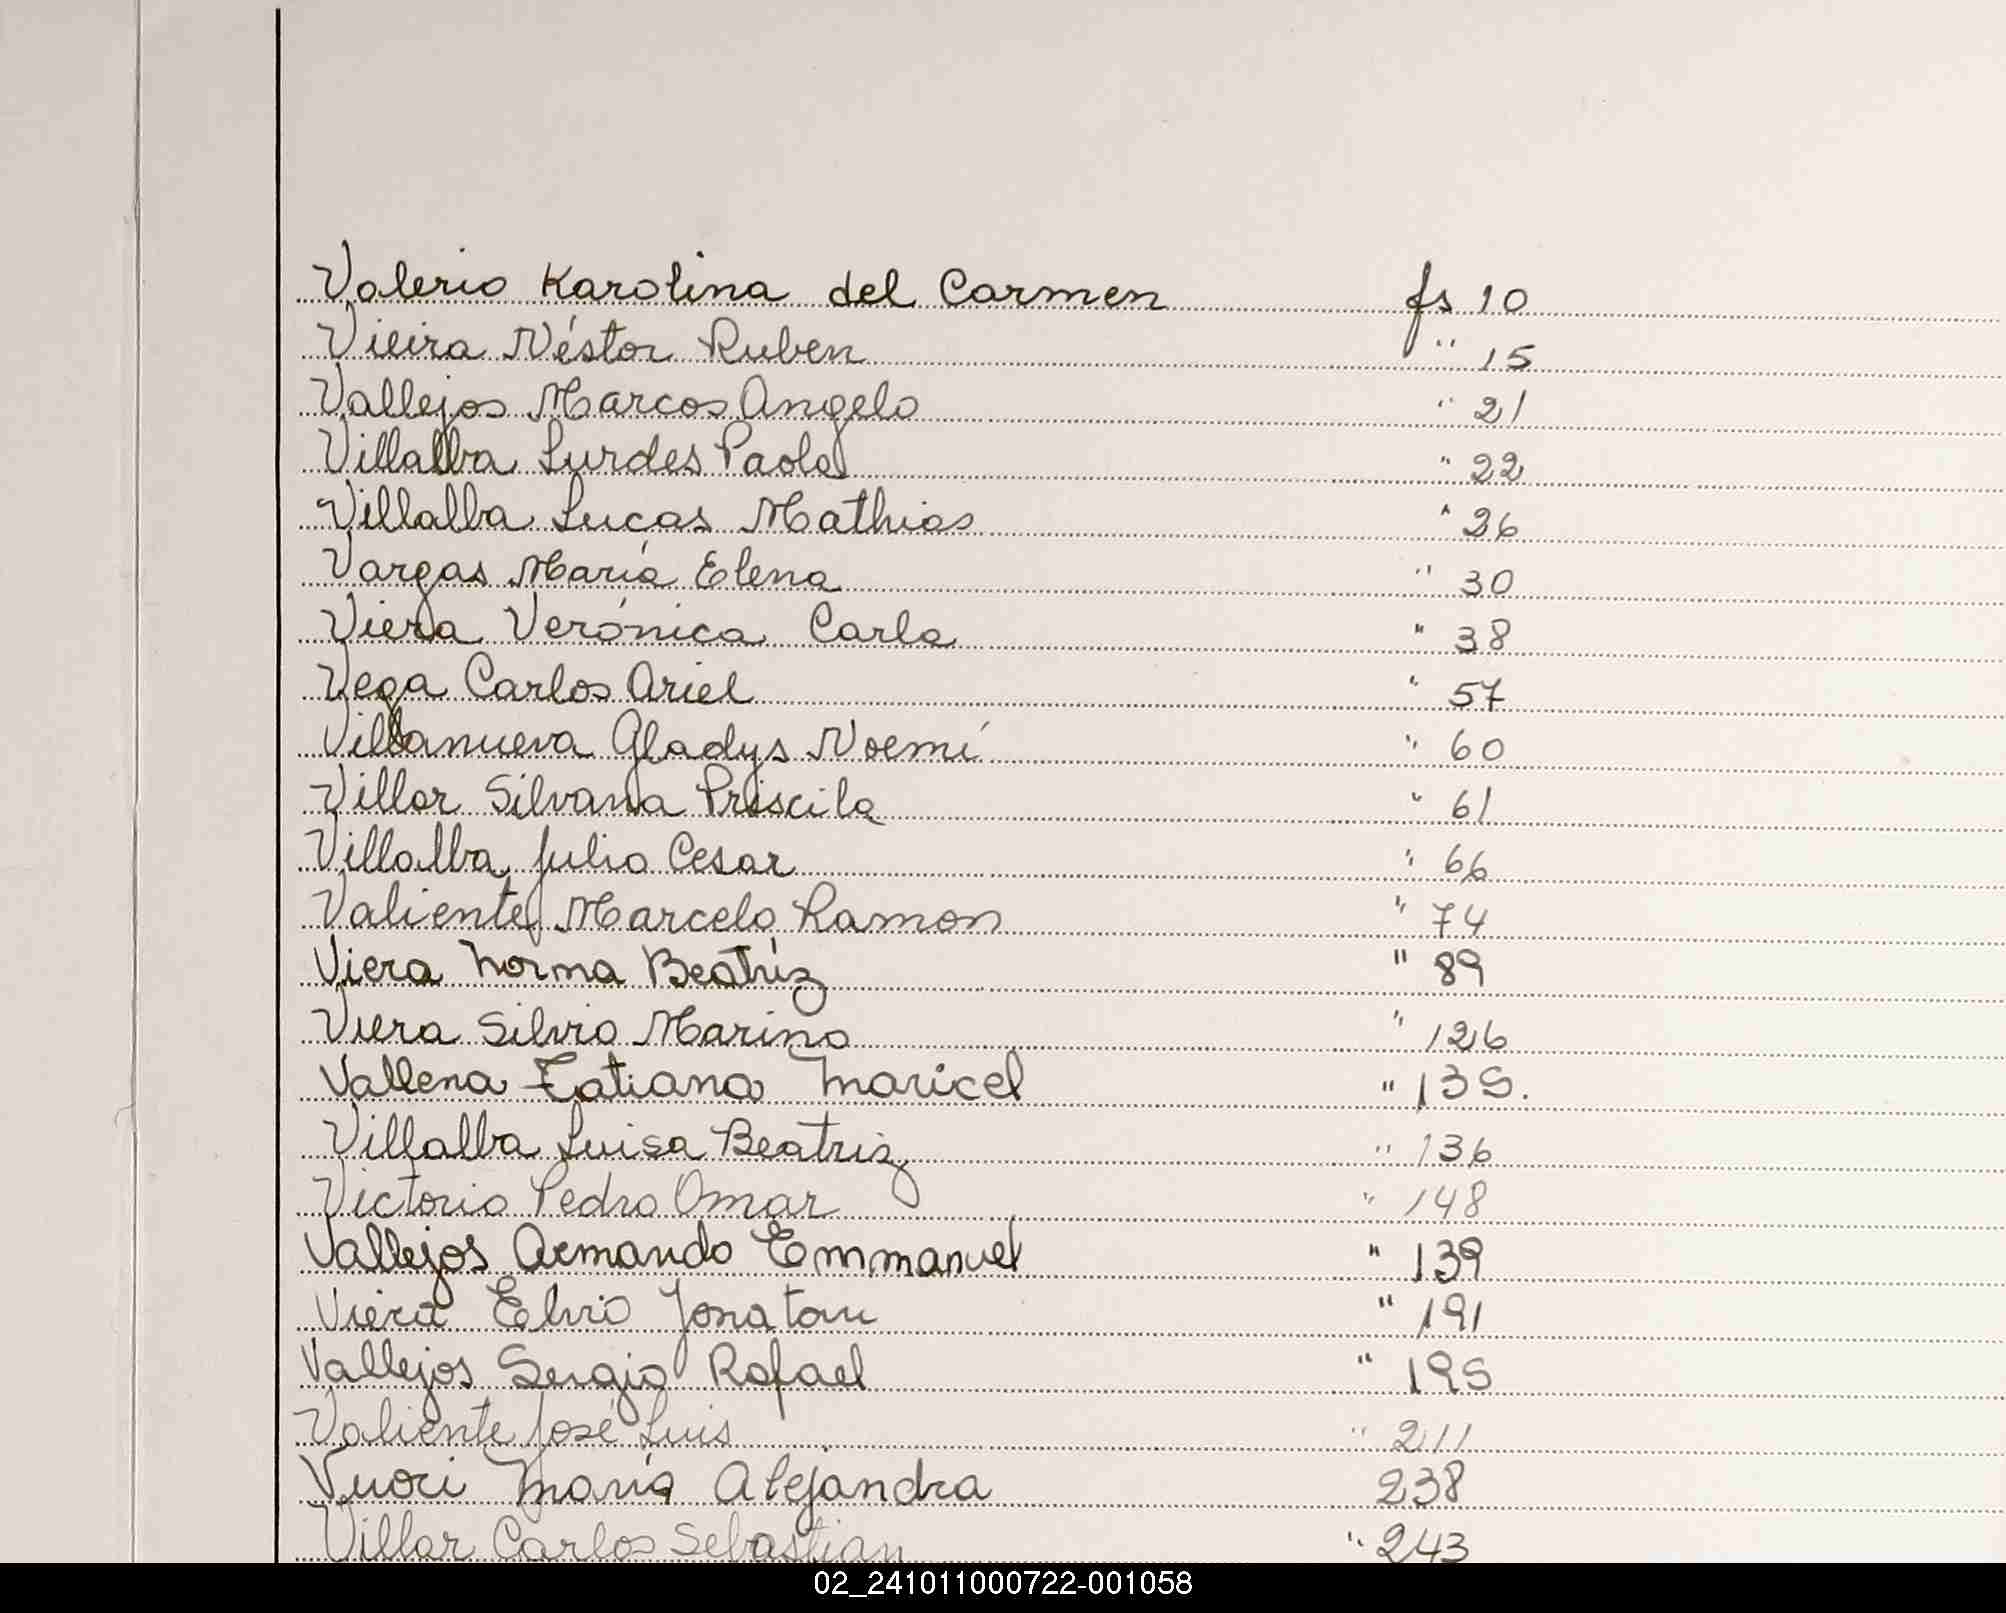 Valerio Karolina del Carmen fs 10
Vieira Néstor Ruben " 15
Vallejos Marcos Angelo " 21
Villalba Lurdes Paola " 22
Villalba Lucas Mathias " 26
Vargas María Elena " 30
Viera Verónica Carla " 38
Vega Carlos Ariel " 57
Villanueva Gladys Noemí " 60
Villar Silvana Priscila " 61
Villalba Julio Cesar " 66
Valiente Marcelo Ramon " 74
Viera Norma Beatríz " 89
Viera Silvio Marino " 126
Vallena Tatiana Maricel " 135.
Villalba Luisa Beatriz " 136
Victorio Pedro Omar " 148
Vallejos Armando Emmanuel " 139
Viera Elvio Jonatan " 191
Vallejos Sergio Rafael " 195
Valiente José Luis " 211
Vuori María Alejandra 238
Villar Carlos Sebastian " 243
02_241011000722-001058